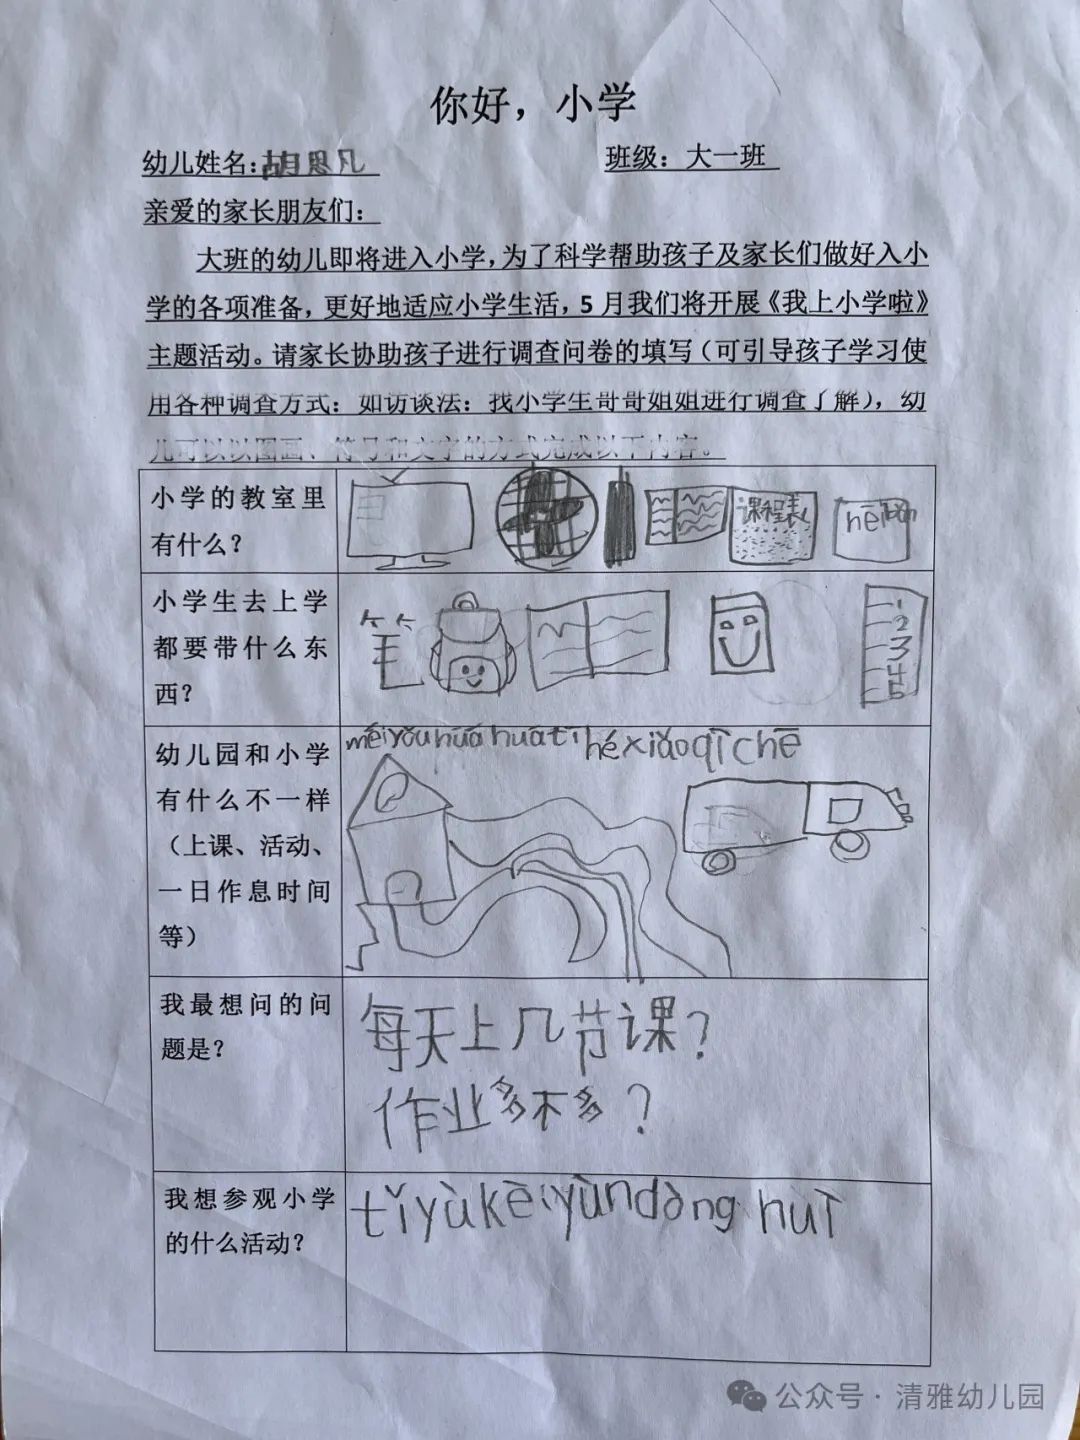 你好，小学
幼儿姓名：胡思凡 班级：大一班
亲爱的家长朋友们：
大班的幼儿即将进入小学，为了科学帮助孩子及家长们做好入小
学的各项准备，更好地适应小学生活，5 月我们将开展《我上小学啦》
主题活动。请家长协助孩子进行调查问卷的填写（可引导孩子学习使
用各种调查方式：如访谈法：找小学生哥哥姐姐进行调查了解），幼
儿可以以图画、符号和文字的方式完成以下内容。
小学的教室里
有什么？
课程表
hēi bǎn
小学生去上学
都要带什么东
西？
笔
1
2
3
4
5
幼儿园和小学
有什么不一样
（上课、活动、
一日作息时间
等）
méi yǒu huá huá tī hé xiǎo qì chē
我最想问的问
题是？
每天上几节课？
作业多不多？
我想参观小学
的什么活动？
tǐ yù kè yùn dòng huì
公众号·清雅幼儿园